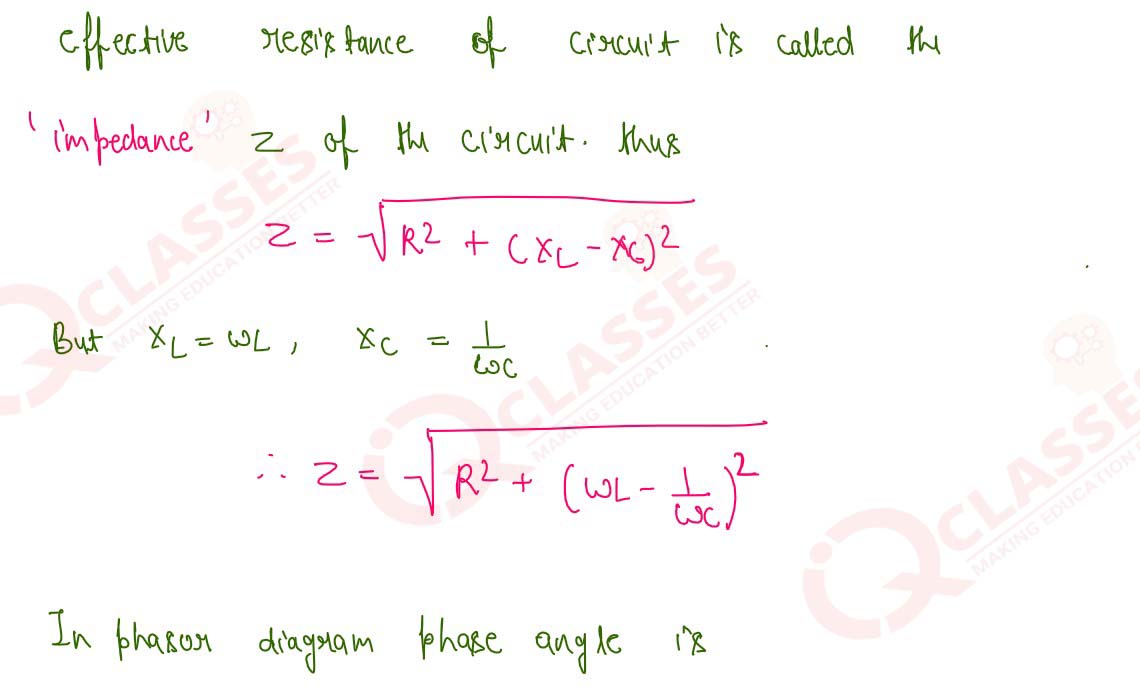 effective resistance of circuit is called the
'impedance' Z of the circuit. thus
Z = √R² + (XL - XC)²
But XL = ωL, XC = 1/ωC
∴ Z = √R² + (ωL - 1/ωC)²
In phasor diagram phase angle is
QCLASSES
MAKING EDUCATION BETTER
QCLASSES
MAKING EDUCATION BETTER
QCLASSES
MAKING EDUCATION